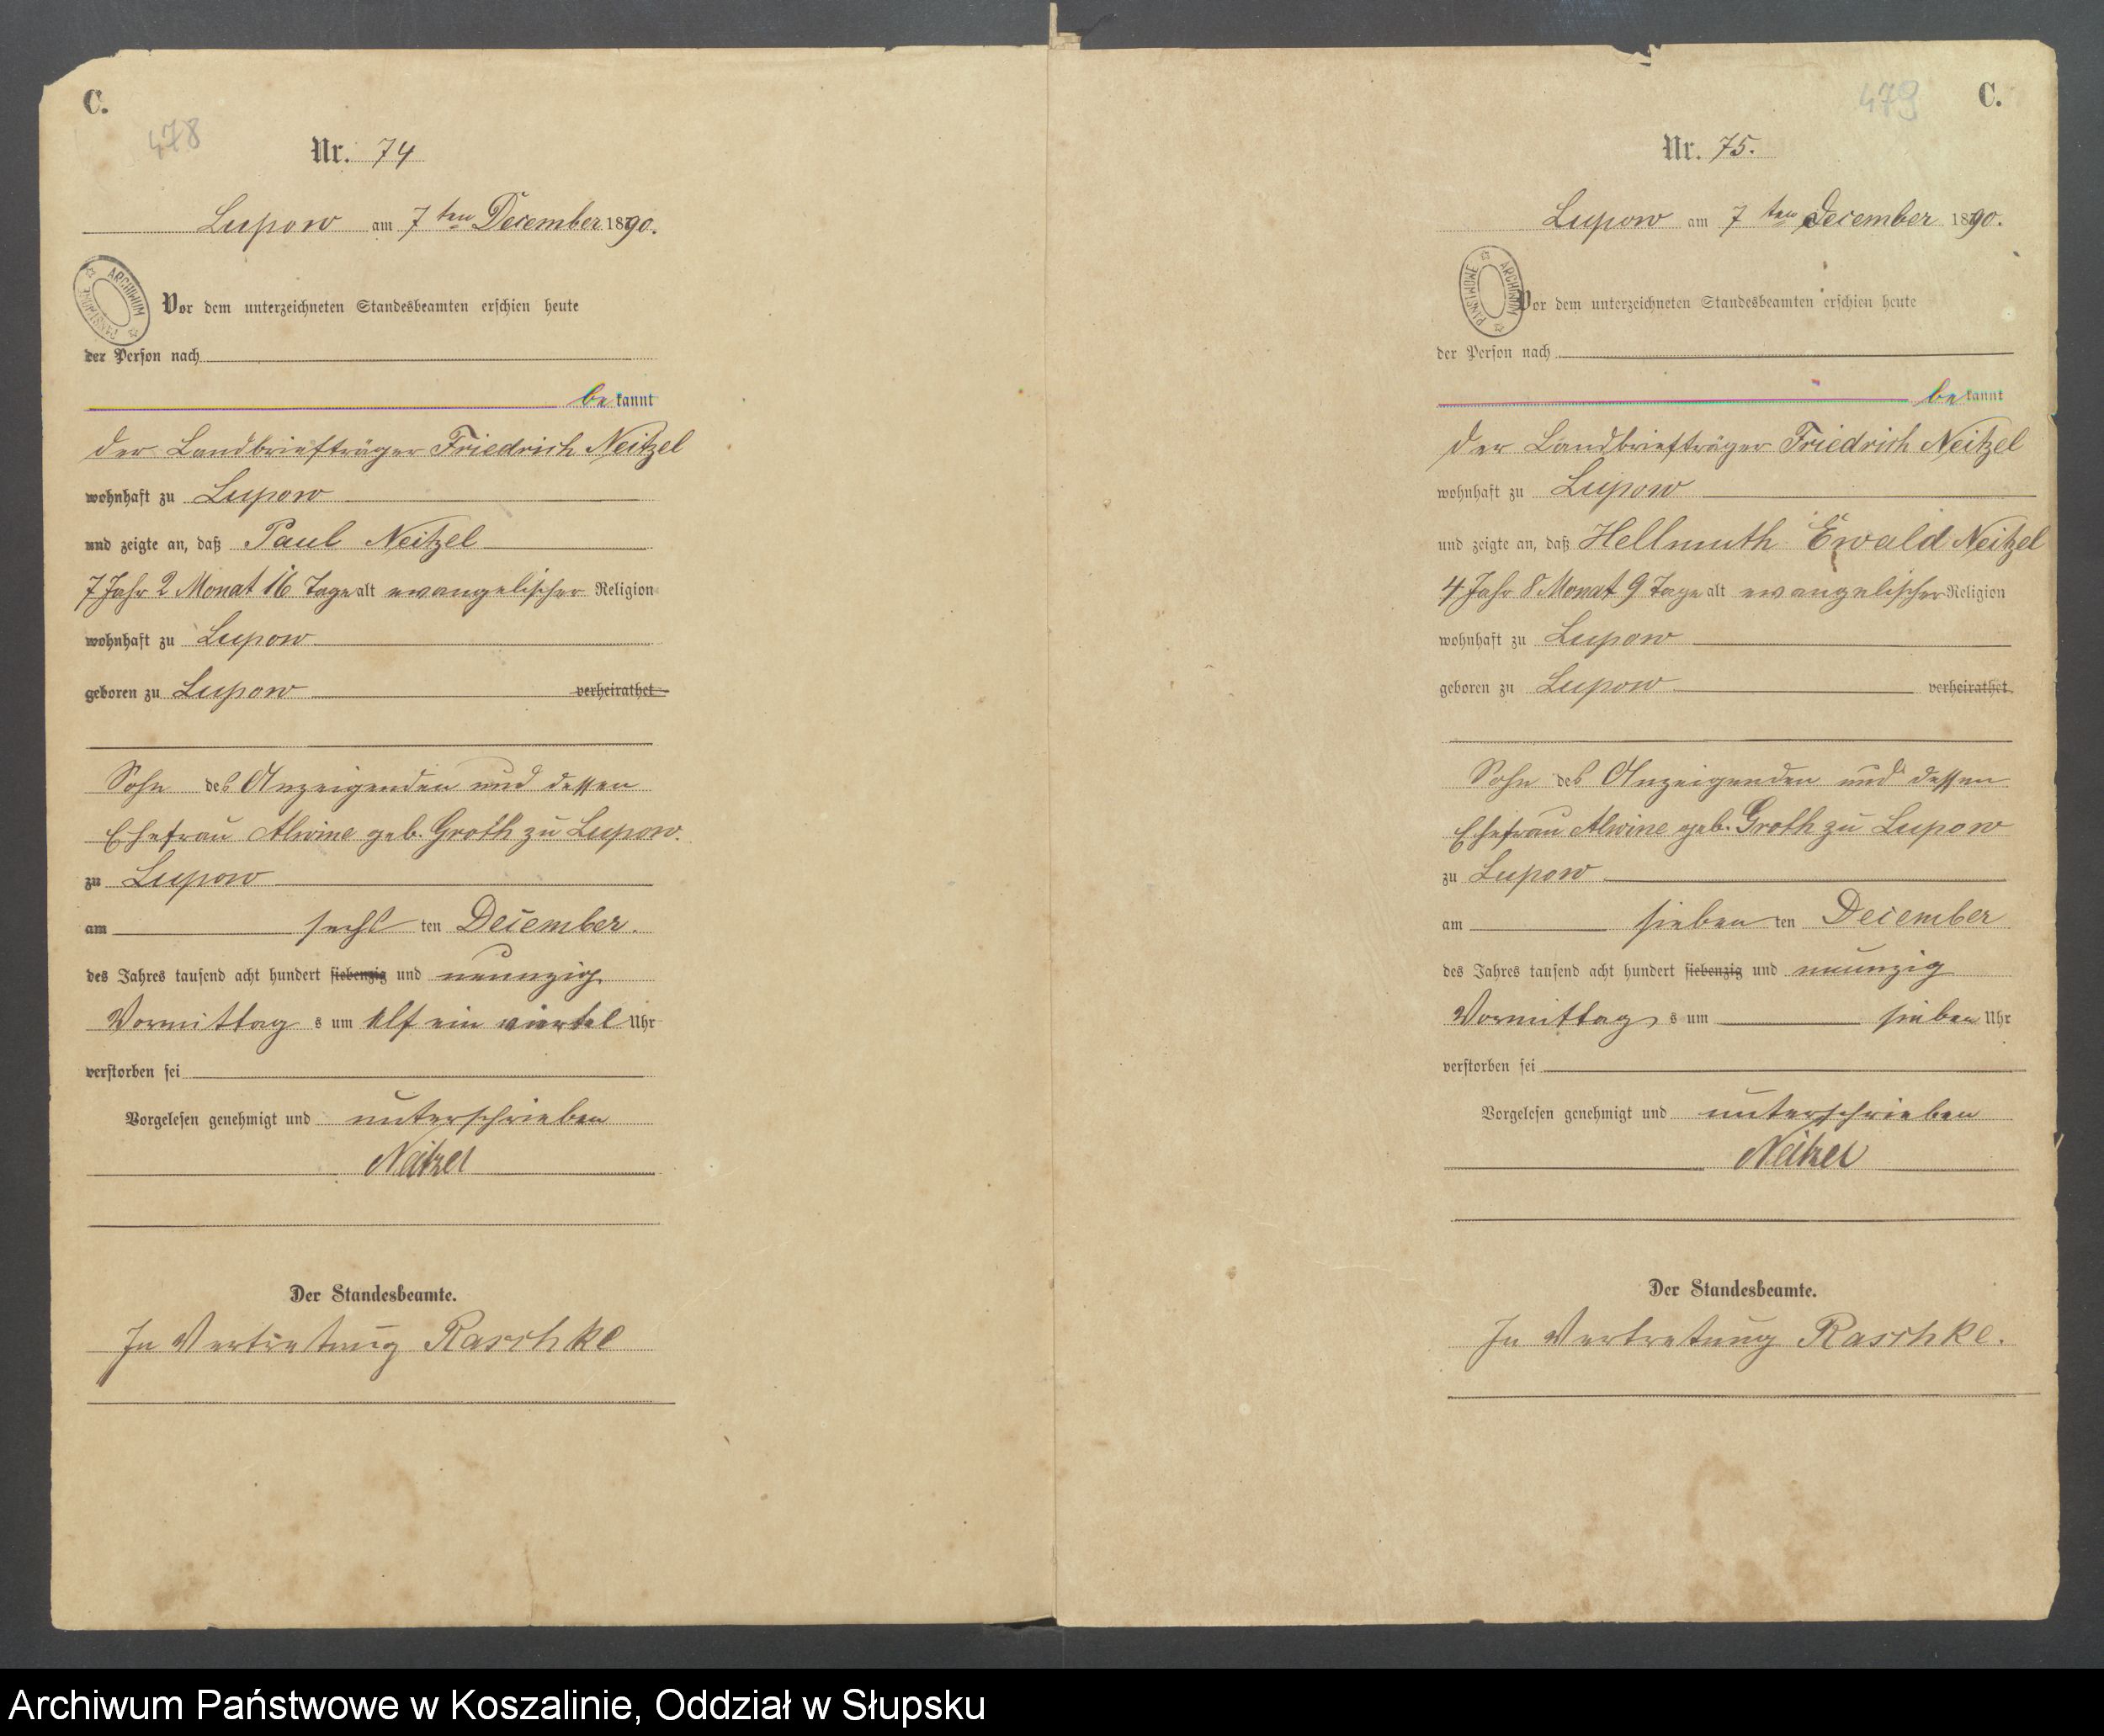 C.
478
Nr. 74
Lupow am 7ten December 1890.
ARCHIWUM PAŃSTWOWE
Vor dem unterzeichneten Standesbeamten erschien heute
der Person nach
bekannt
der Landbriefträger Friedrich Neitzel
wohnhaft zu Lupow
und zeigte an, daß Paul Neitzel
7 Jahr 2 Monat 16 Tage alt evangelischer Religion
wohnhaft zu Lupow
geboren zu Lupow verheirathet
Sohn des Anzeigenden und dessen
Ehefrau Alwine geb. Groth zu Lupow.
zu Lupow
am sechs ten December.
des Jahres tausend acht hundert siebenzig und neunzig
Vormittags um elf ein viertel Uhr
verstorben sei
Vorgelesen genehmigt und unterschrieben
Neitzel
Der Standesbeamte.
In Vertretung Raschke
479
C.
Nr. 75.
Lupow am 7ten December 1890.
ARCHIWUM PAŃSTWOWE
Vor dem unterzeichneten Standesbeamten erschien heute
der Person nach
bekannt
der Landbriefträger Friedrich Neitzel
wohnhaft zu Lupow
und zeigte an, daß Hellmuth Ewald Neitzel
4 Jahr 8 Monat 9 Tage alt evangelischer Religion
wohnhaft zu Lupow
geboren zu Lupow verheirathet
Sohn des Anzeigenden und dessen
Ehefrau Alwine geb. Groth zu Lupow
zu Lupow
am sieben ten December
des Jahres tausend acht hundert siebenzig und neunzig
Vormittags um sieben Uhr
verstorben sei
Vorgelesen genehmigt und unterschrieben
Neitzel
Der Standesbeamte.
In Vertretung Raschke.
Archiwum Państwowe w Koszalinie, Oddział w Słupsku